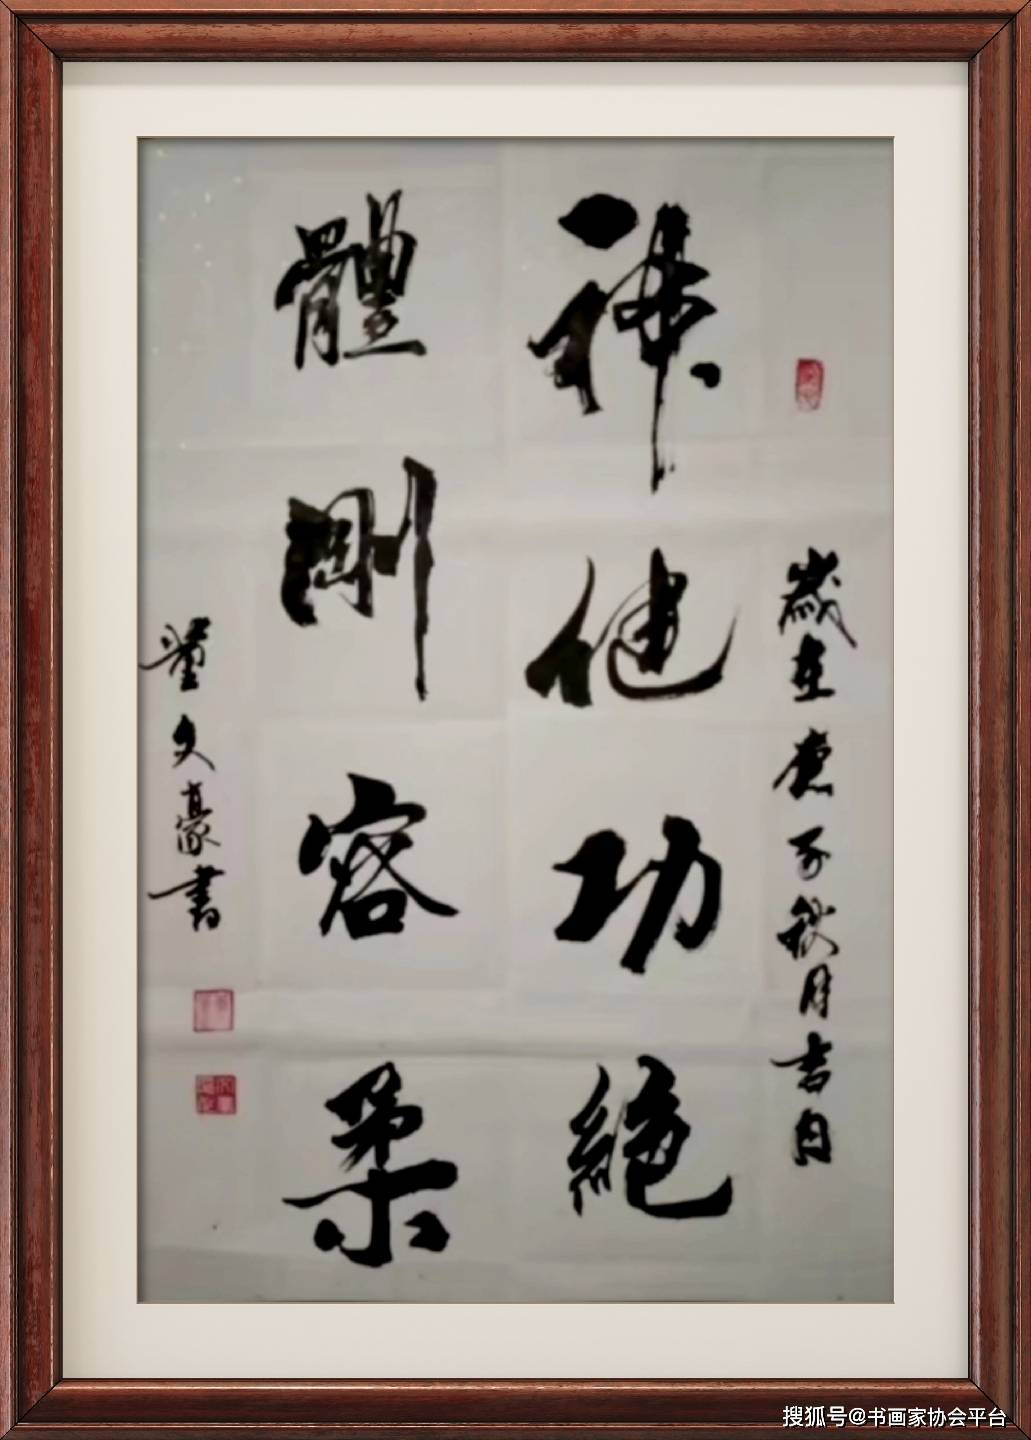 歲在庚子秋月吉日
他功絕
體剛容柔
董文豪書
搜狐号@书画家协会平台